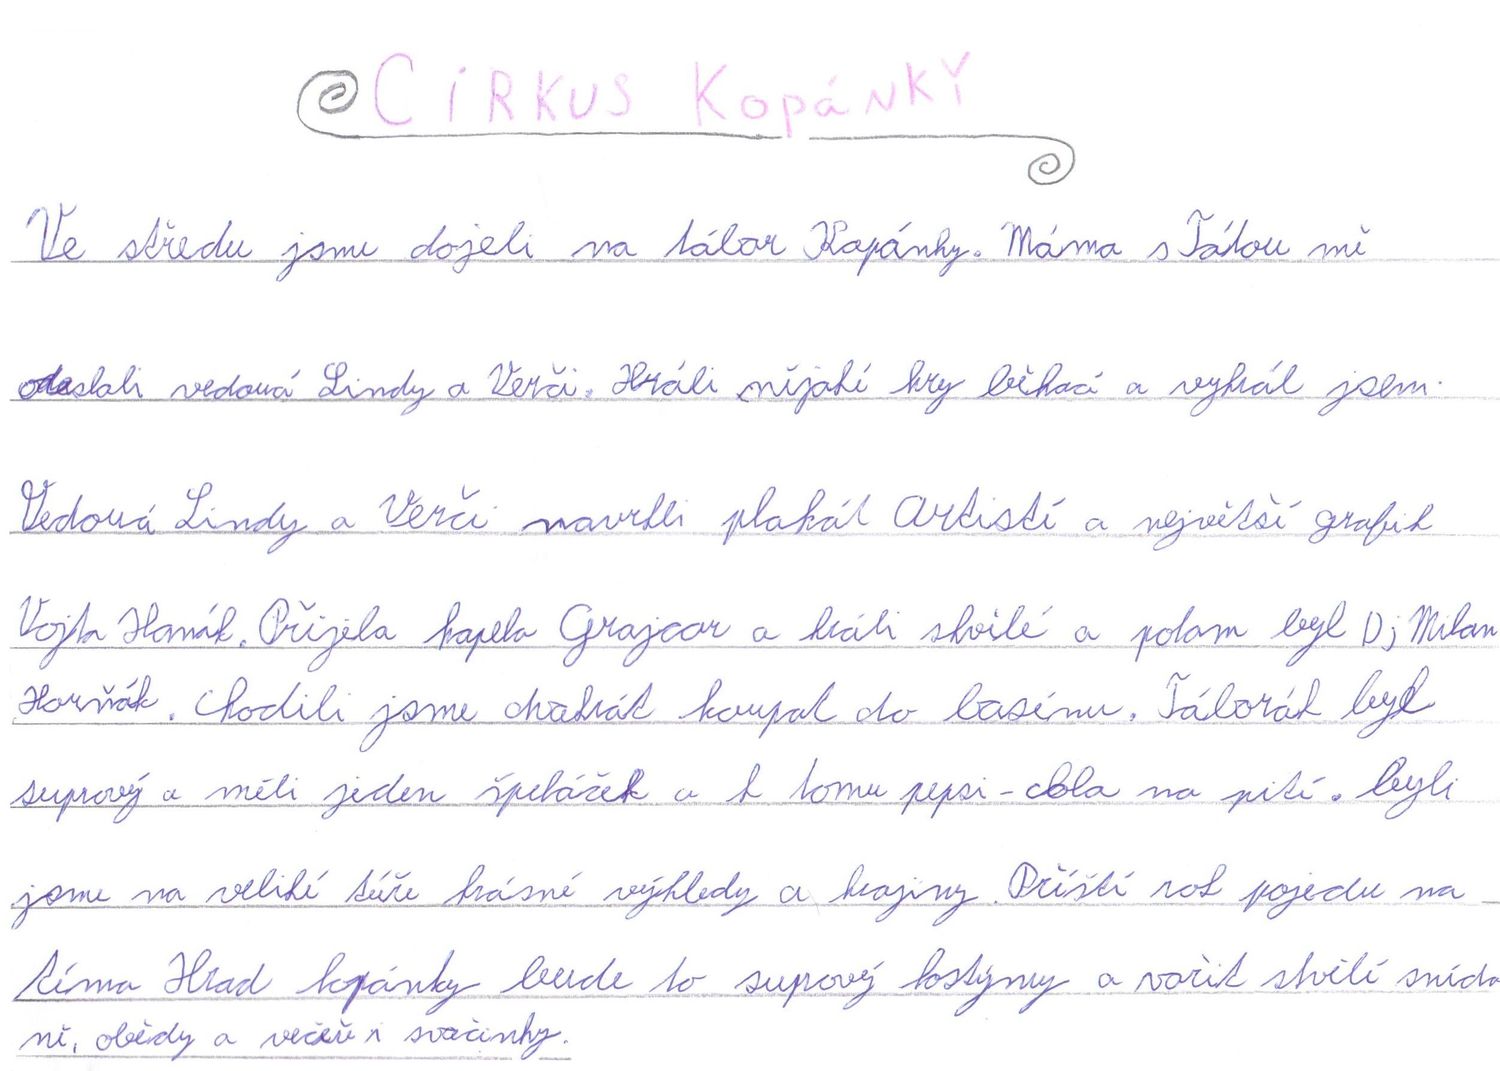 CIRKUS KopánKY
Ve středu jsme dojeli na tábor Kopánky. Máma s Tátou mě
odeslali vedouá Lindy a Verči. Hráli nijaké hry běhací a vyhrál jsem.
Vedouá Lindy a Verči navrhli plakát Artistí a největší grafik
Vojta Hanák. Přijela kapela Grajcar a hráli skvělé a potom byl Dj Milan
Horňák. Chodili jsme dvakrát koupat do basénu. Táborák byl
suprový a měli jeden špekáček a k tomu pepsi-cola na pití. byli
jsme na veliké túře krásné výhledy a krajiny. Příští rok pojedu na
téma Hrad kopánky bude to suprový kostýmy a vařit skvělí snída
ně, obědy a večeře i svačinky.